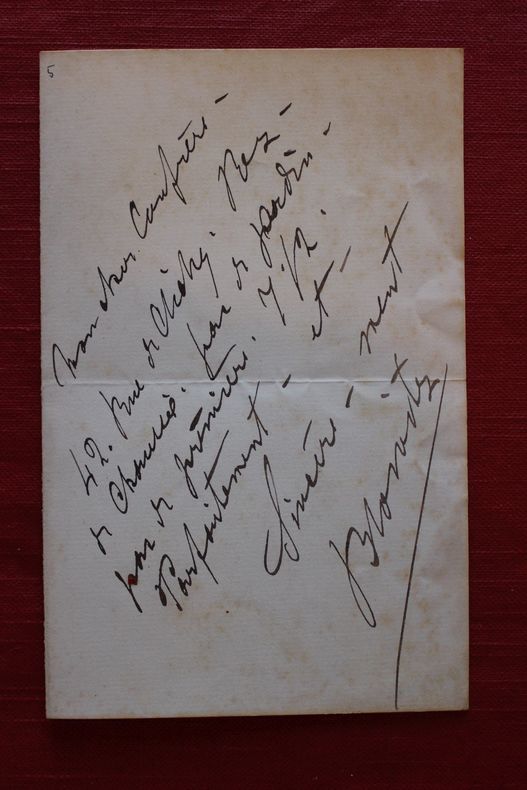 5
Mon cher Confrère -
42. Rue de Clichy. Rez-
de Chaussée. pas de jardin -
pas de première. 7 1/2.
Parfaitement - et -
Sincère - ment
Blowitz